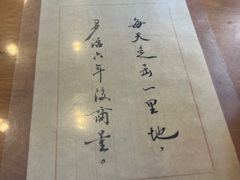 每天走出一里地，
多活六年没商量。